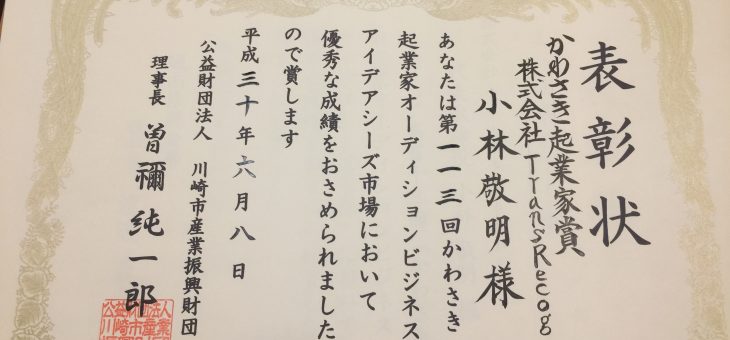 表彰状
かわさき起業家賞
株式会社TransRecog
小林敬明様
あなたは第一一三回かわさき
起業家オーディションビジネス
アイデアシーズ市場において
優秀な成績をおさめられました
ので賞します
平成三十年六月八日
公益財団法人 川崎市産業振興財団
理事長 曽禰純一郎